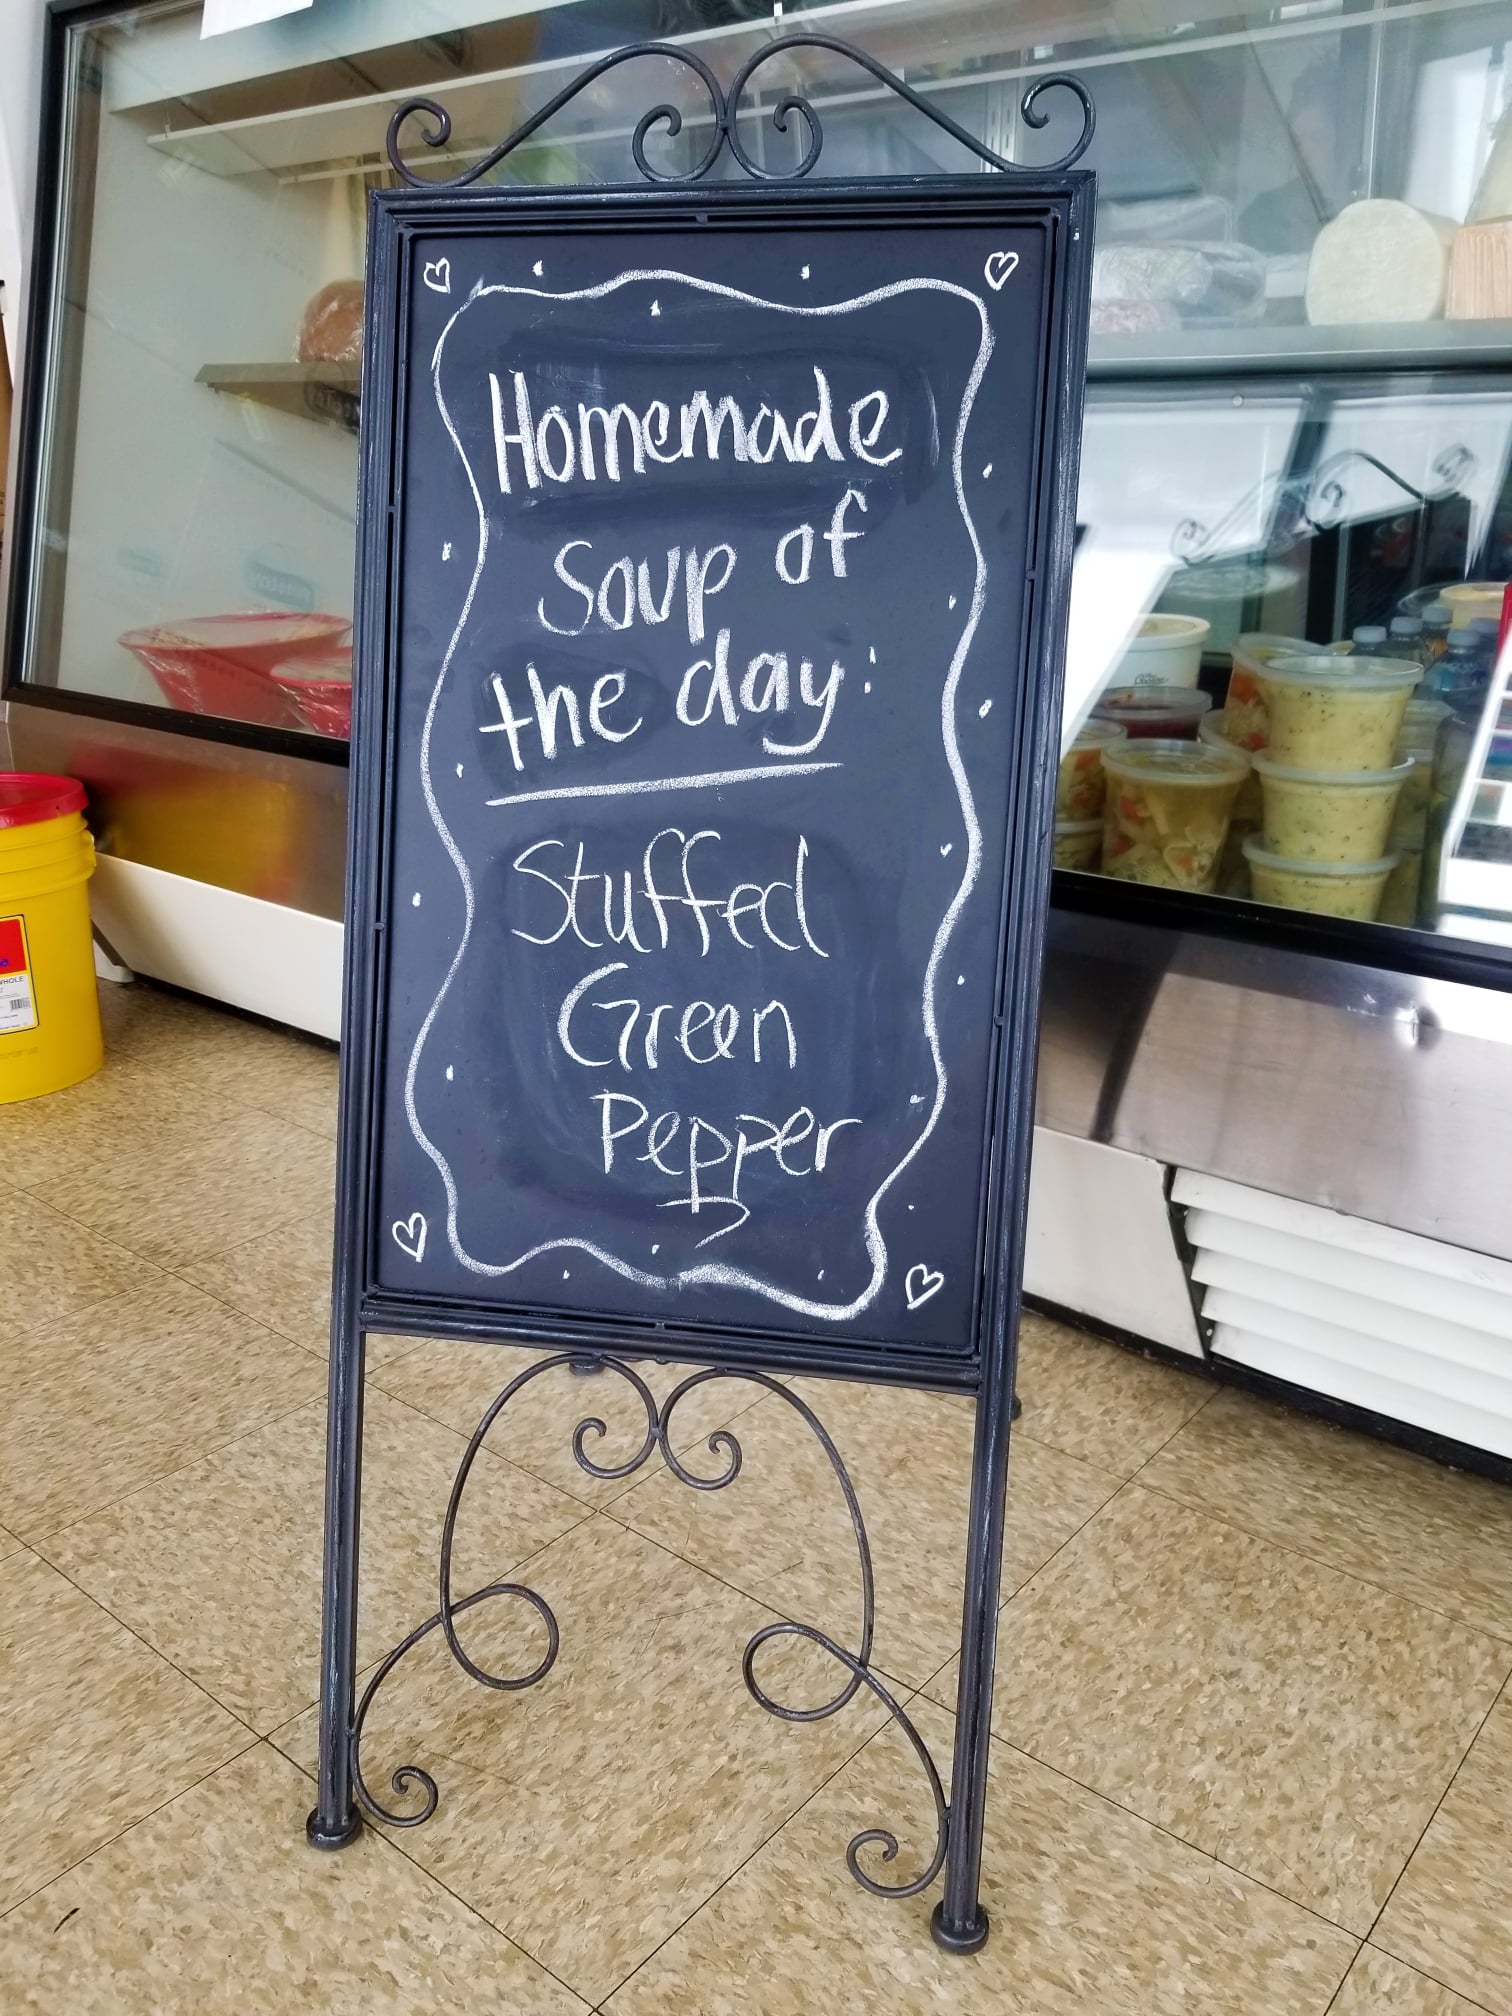 Homemade
Soup of
the day:
Stuffed
Green
Pepper
WHOLE